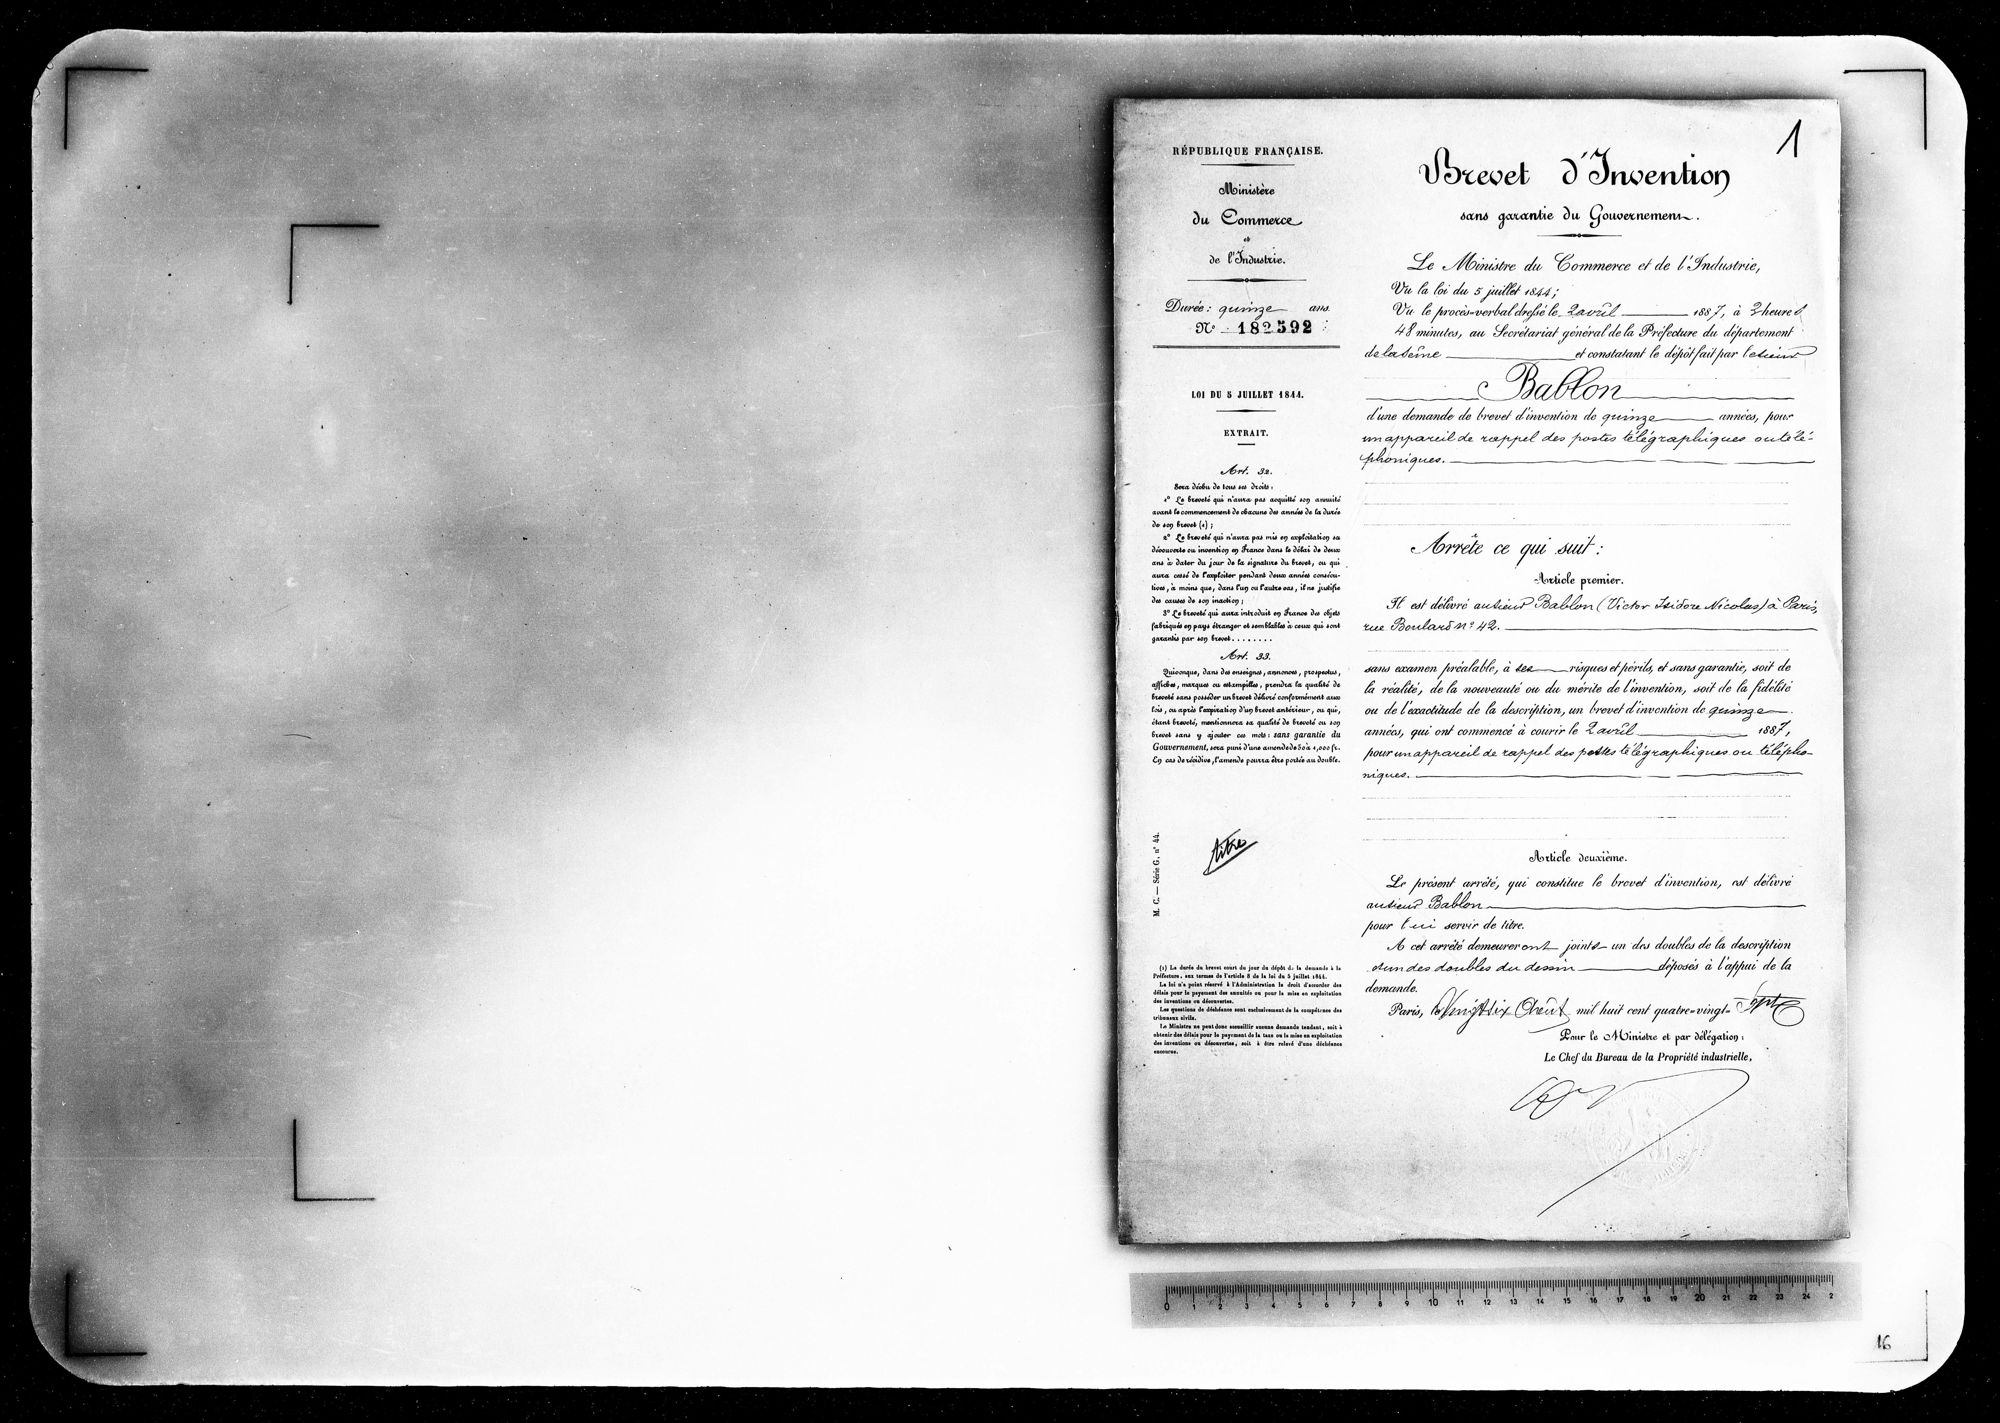 RÉPUBLIQUE FRANÇAISE.
Ministère
du Commerce
et
de l'Industrie.
Durée: quinze ans.
N° 182592
LOI DU 5 JUILLET 1844.
EXTRAIT.
Art. 32.
Sera déchu de tous ses droits:
1° Le breveté qui n'aura pas acquitté son annuité
avant le commencement de chacune des années de la durée
de son brevet (1);
2° Le breveté qui n'aura pas mis en exploitation sa
découverte ou invention en France dans le délai de deux
ans à dater du jour de la signature du brevet, ou qui
aura cessé de l'exploiter pendant deux années consécu-
tives, à moins que, dans l'un ou l'autre cas, il ne justifie
des causes de son inaction;
3° Le breveté qui aura introduit en France des objets
fabriqués en pays étranger et semblables à ceux qui sont
garantis par son brevet........
Art. 33.
Quiconque, dans des enseignes, annonces, prospectus,
affiches, marques ou estampilles, prendra la qualité de
breveté sans posséder un brevet délivré conformément aux
lois, ou après l'expiration d'un brevet antérieur, ou qui,
étant breveté, mentionnera sa qualité de breveté ou son
brevet sans y ajouter ces mots: sans garantie du
Gouvernement, sera puni d'une amende de 50 à 1,000 fr.
En cas de récidive, l'amende pourra être portée au double.
M. C. — Série G, n° 44.
titres
(1) La durée du brevet court du jour du dépôt de la demande à la
Préfecture, aux termes de l'article 8 de la loi du 5 juillet 1844.
La loi n'a point réservé à l'Administration le droit d'accorder des
délais pour le payement des annuités ou pour la mise en exploitation
des inventions ou découvertes.
Les questions de déchéance sont exclusivement de la compétence des
tribunaux civils.
Le Ministre ne peut donc accueillir aucune demande tendant, soit à
obtenir des délais pour le payement de la taxe ou la mise en exploitation
des inventions ou découvertes, soit à être relevé d'une déchéance
encourue.
1
Brevet d'Invention
sans garantie du Gouvernement.
Le Ministre du Commerce et de l'Industrie,
Vu la loi du 5 juillet 1844;
Vu le procès-verbal dressé le 2 avril 1887, à 3 heures
48 minutes, au Secrétariat général de la Préfecture du département
de la Seine et constatant le dépôt fait par le sieur
Bablon
d'une demande de brevet d'invention de quinze années, pour
un appareil de rappel des postes télégraphiques ou télé-
phoniques.
Arrête ce qui suit:
Article premier.
Il est délivré au sieur Bablon (Victor Isidore Nicolas) à Paris,
rue Boulard n° 42.
sans examen préalable, à ses risques et périls, et sans garantie, soit de
la réalité, de la nouveauté ou du mérite de l'invention, soit de la fidélité
ou de l'exactitude de la description, un brevet d'invention de quinze
années, qui ont commencé à courir le 2 avril 1887,
pour un appareil de rappel des postes télégraphiques ou télépho-
niques.
Article deuxième.
Le présent arrêté, qui constitue le brevet d'invention, est délivré
au sieur Bablon
pour lui servir de titre.
A cet arrêté demeureront joints un des doubles de la description
et un des doubles du dessin déposés à l'appui de la
demande.
Paris, le Vingt six Août mil huit cent quatre-vingt-Sept
Pour le Ministre et par délégation:
Le Chef du Bureau de la Propriété industrielle,
0 1 2 3 4 5 6 7 8 9 10 11 12 13 14 15 16 17 18 19 20 21 22 23 24 2
16